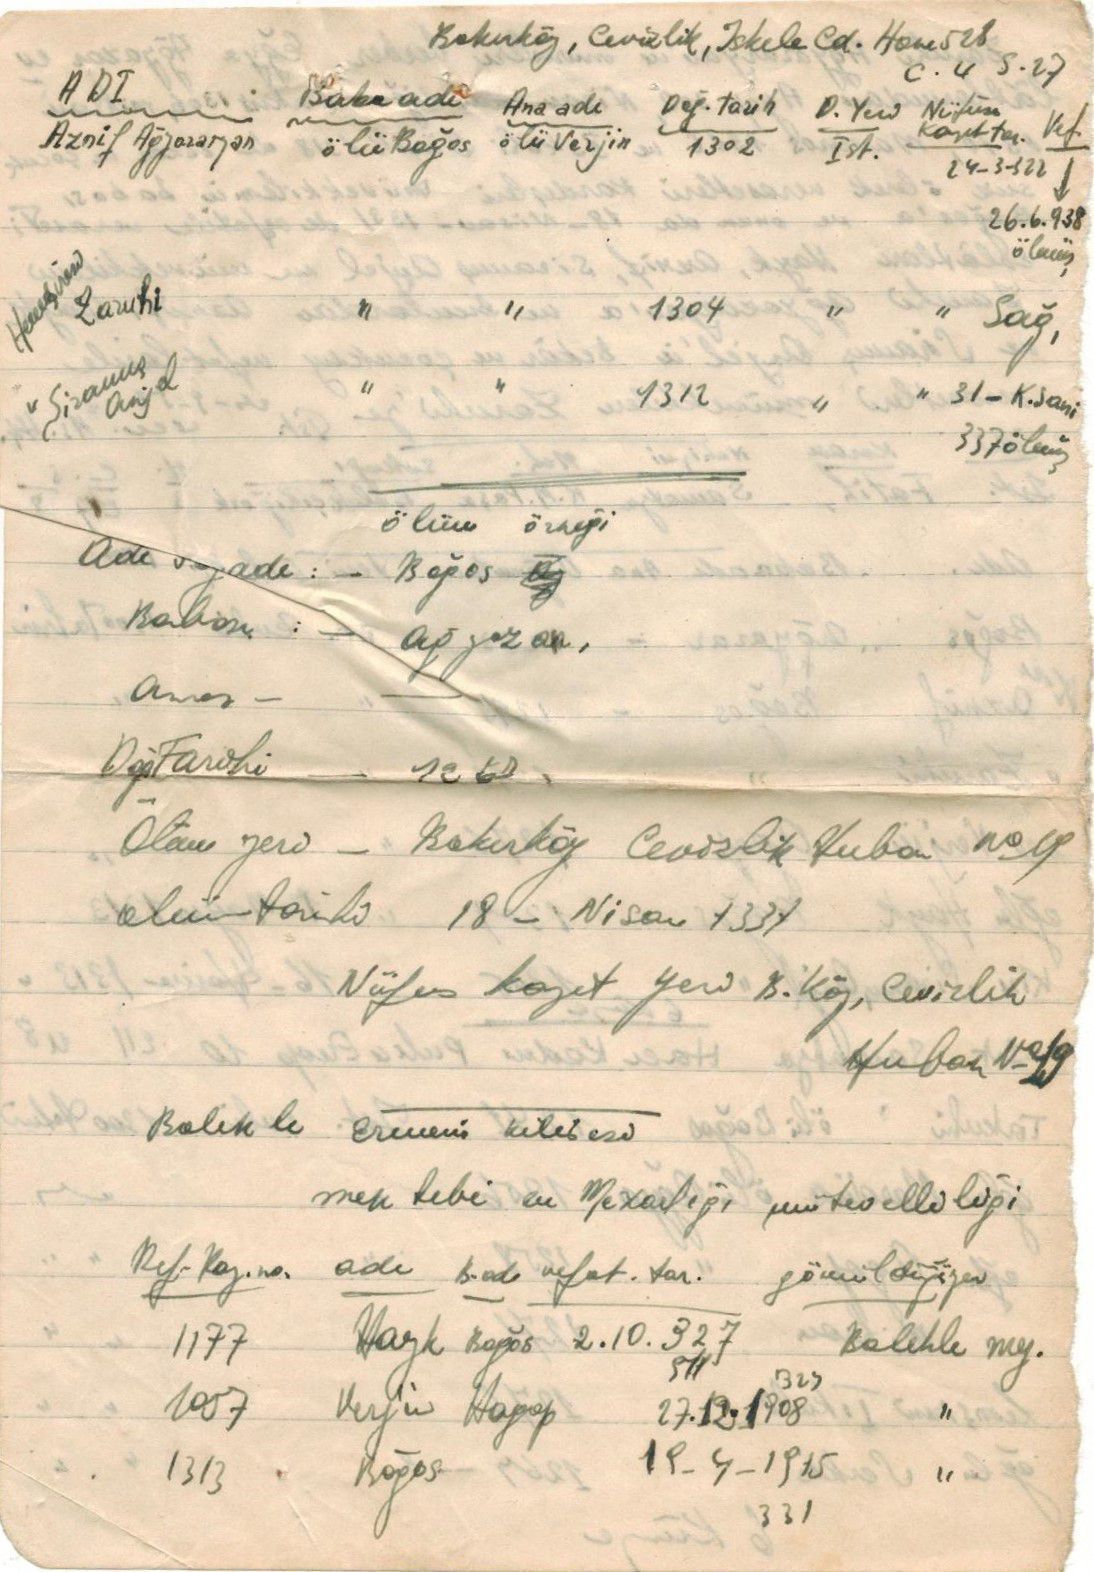 Bakırköy, Cevizlik, İskele Cd. Hane 528
C. 4 S. 27
ADI Baba adı Ana adı Doğ. Tarih D. Yeri Nüfus Kayıt tar. Vef.
Aznif Ağyazaryan ölü Boğos ölü Verjin 1302 İst. 24-3-322
26.6.938
ölmüş
Hemşiresi Zaruhi " " 1304 " " Sağ,
" Siranuş Anjel " " 1312 " " 31-K.sani
337 ölmüş
ölüm örneği
Adı soyadı : - Boğos
Babası : - Ağyazar,
Anası - —
Doğ Tarihi —
Ölüm yeri — Bakırköy Cevizlik No 19
ölüm tarihi 18 - Nisan 1331
Nüfus kayıt yeri B.Köy, Cevizlik
No 19
Balıklı Ermeni kilisesi
mektebi ve Mezarlığı mütevelliliği
Def. Kay. no. adı B. adı vefat. tar. gömüldüğü yer
1177 Hayk Boğos 2.10.327 Balıklı mez.
911
323
1057 Verjin Hagop 27.12.1908 "
1313 Boğos — 19-4-1915 "
331